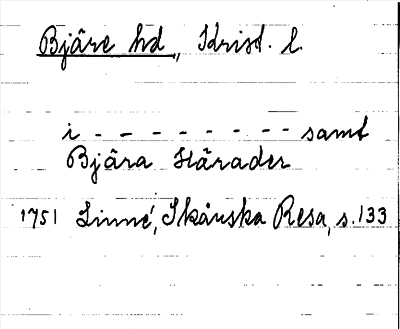 Bjäre hd, Krist. l.
i - - - - - - - - samt
Bjära Härader
1751 Linné, Skånska Resa, s. 133